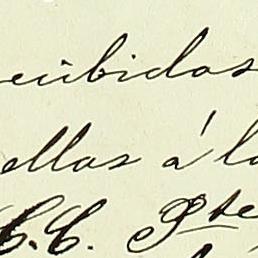 ecibidos
ellas á la
C.C. Pte